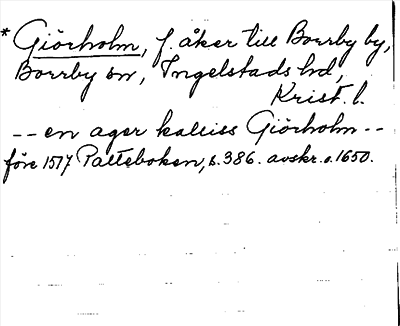 * Giörholm, f. åker till Borrby by,
Borrby sn, Ingelstads hd,
Krist. l.
-- en ager kalleiss Giörholm --
före 1517 Palteboken, s. 386. avskr. o. 1650.